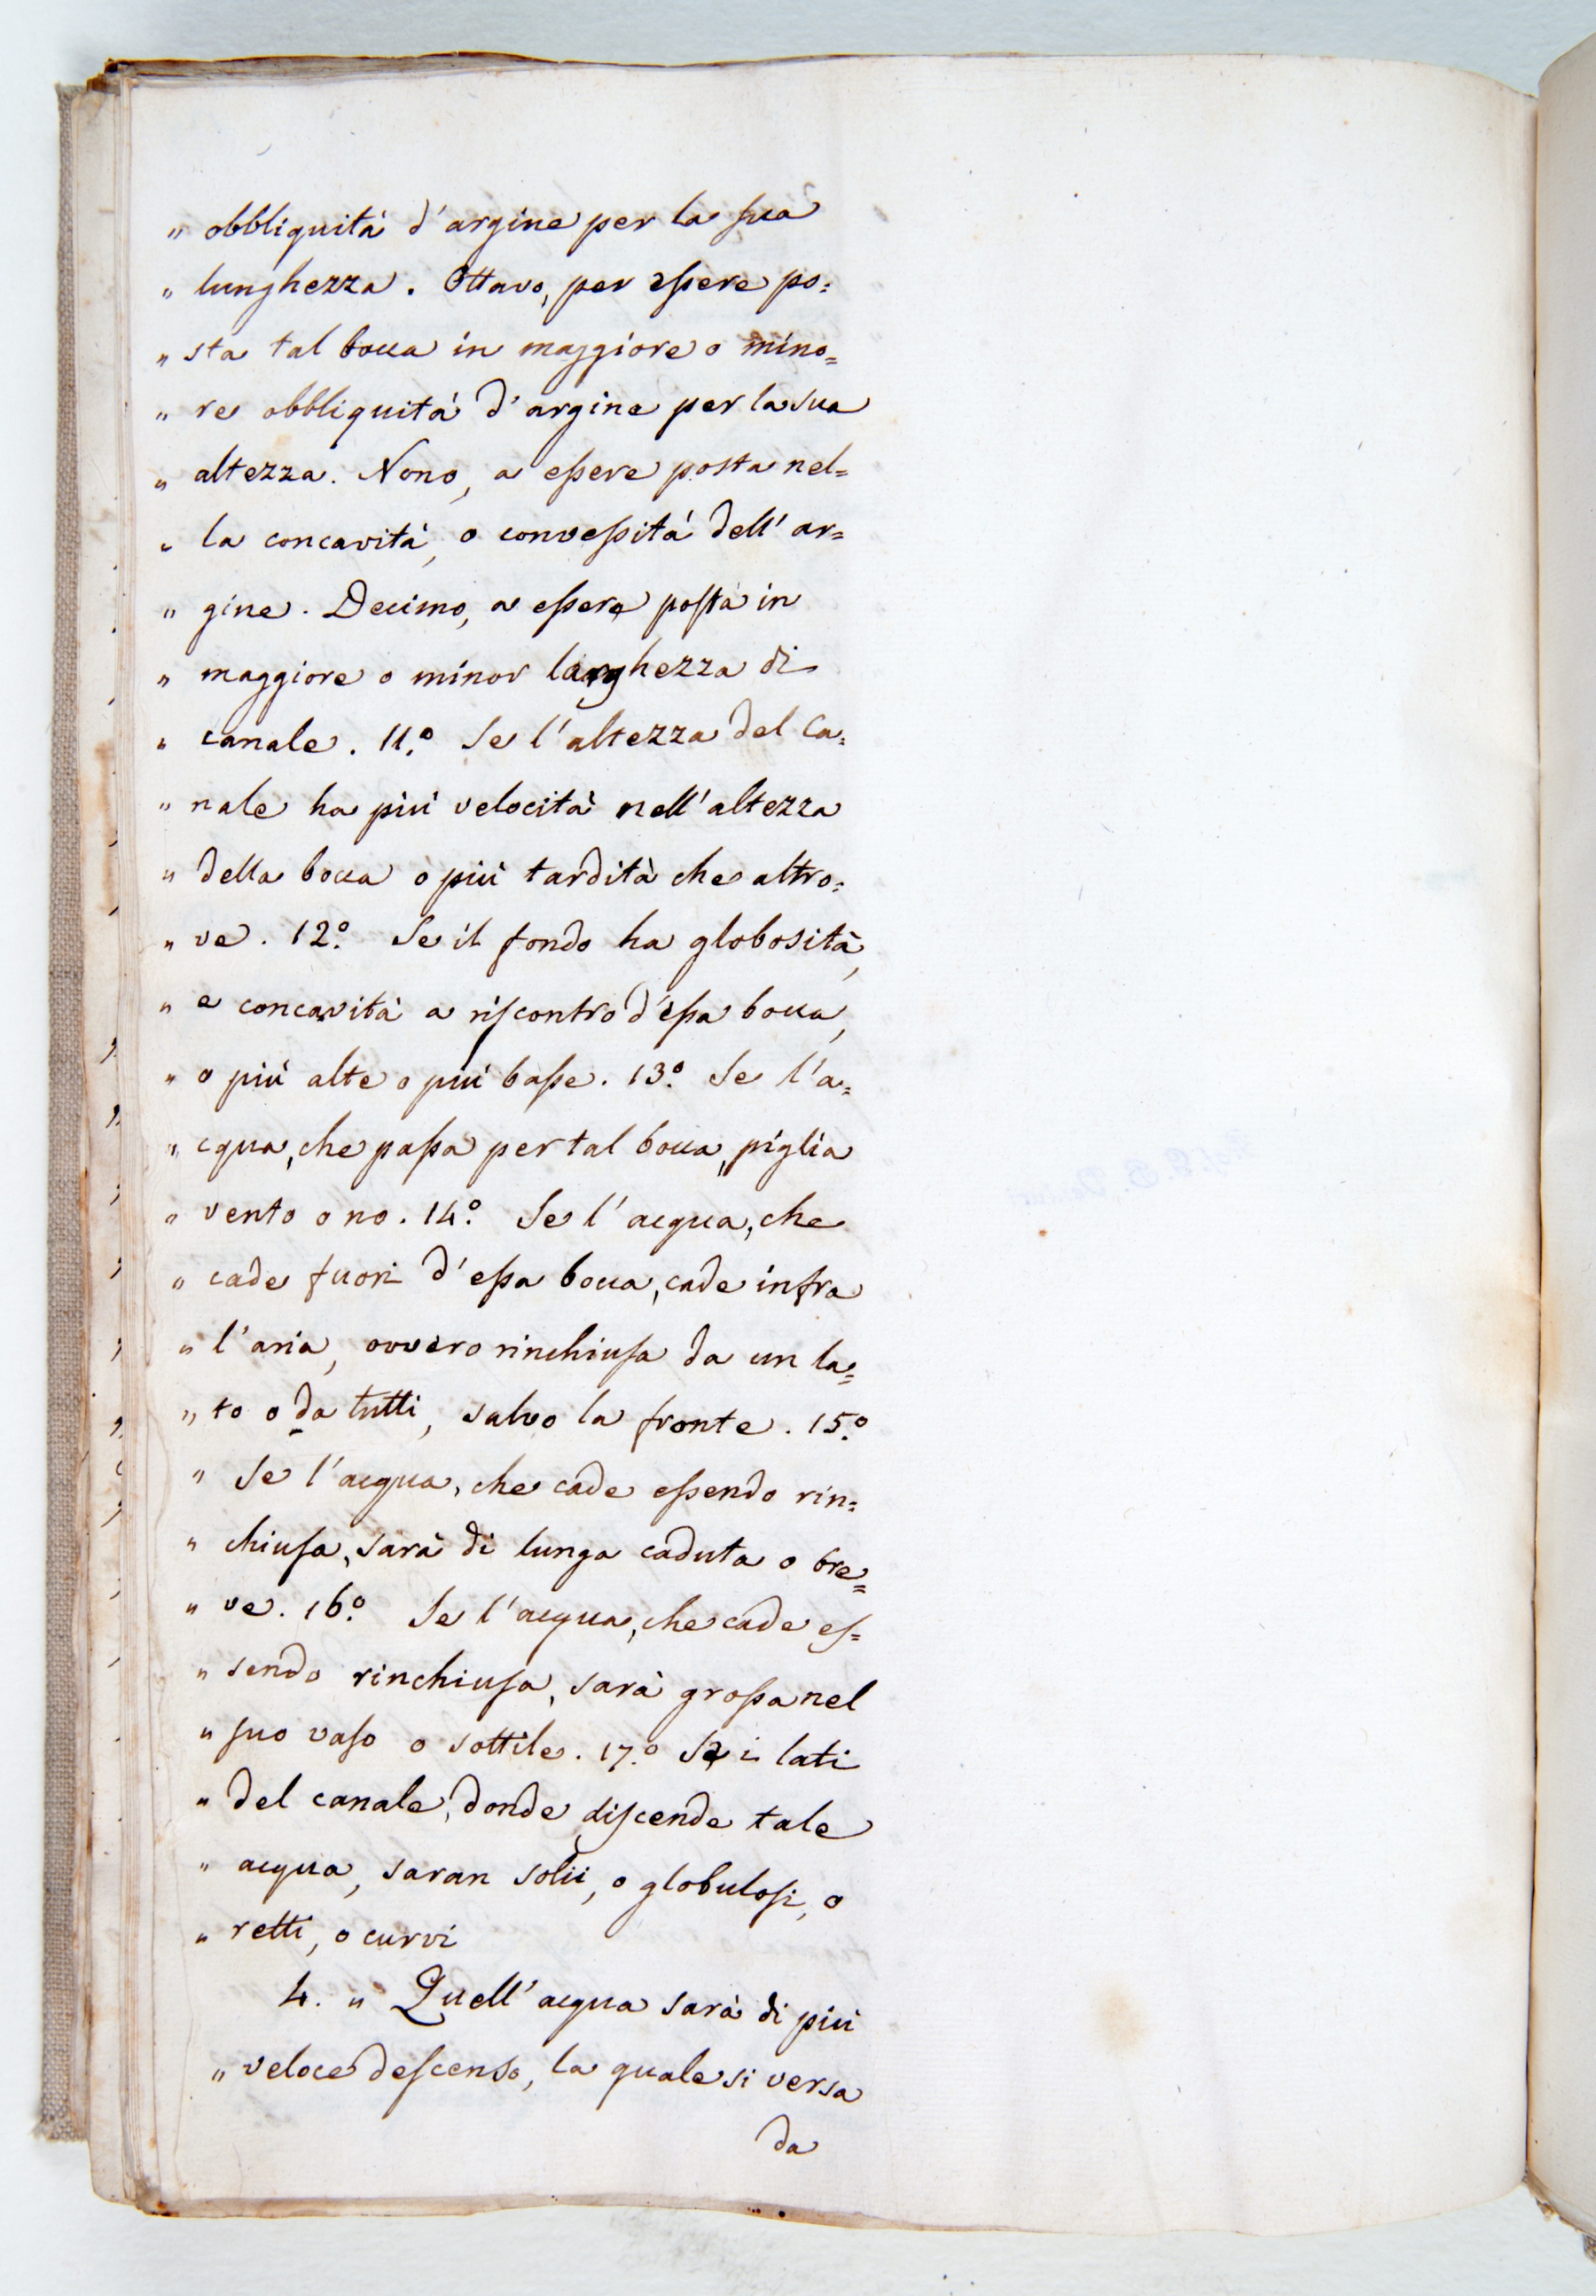 „ obbliquità d'argine per la sua
„ lunghezza. Ottavo, per eſsere po=
„ sta tal bocca in maggiore o mino=
„ re obbliquità d'argine per la sua
„ altezza. Nono, a eſsere posta nel=
„ la concavità, o conveſsità dell'ar=
„ gine. Decimo, a eſsere poſta in
„ maggiore o minor larghezza di
„ canale. 11.º Se l'altezza del ca=
„ nale ha più velocità nell'altezza
„ della bocca o più tardità che altro=
„ ve. 12.º Se il fondo ha globosità,
„ e concavità a riſcontro d'eſsa bocca,
„ o più alte o più baſse. 13.º Se l'a=
„ cqua, che paſsa per tal bocca, piglia
„ vento o no. 14.º Se l'acqua, che
„ cade fuori d'eſsa bocca, cade infra
„ l'aria, ovvero rinchiuſa da un la=
„ to o da tutti, salvo la fronte. 15.º
„ Se l'acqua, che cade eſsendo rin=
„ chiuſa, sarà di lunga caduta o bre=
„ ve. 16.º Se l'acqua, che cade eſ=
„ sendo rinchiuſa, sarà groſsa nel
„ ſuo vaſo o sottile. 17.º Se i lati
„ del canale, donde diſcende tale
„ acqua, saran solii, o globuloſi, o
„ retti, o curvi
4. „ Quell'acqua sarà di più
„ veloce deſcenso, la quale si versa
da